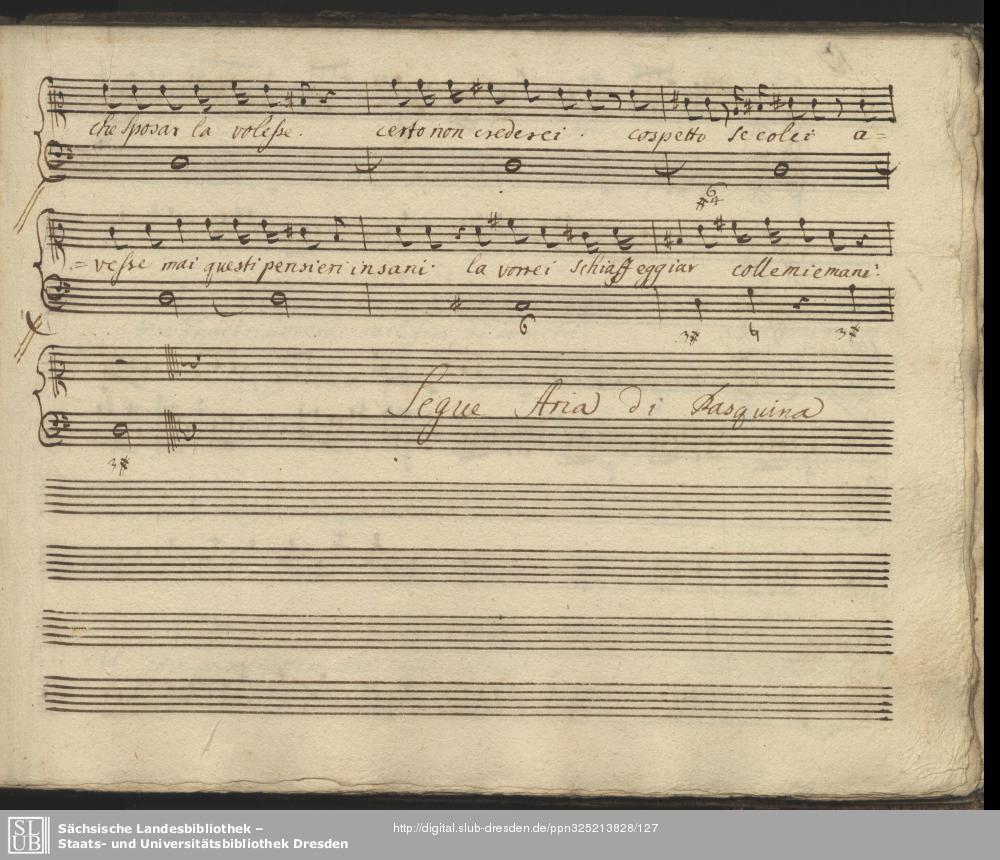 che sposar la volesse. certo non crederei. cospetto se colei a=
=vesse mai questi pensieri insani. la vorrei schiaffeggiar colle mie mani.
Segue Aria di Pasquina
SLUB
Sächsische Landesbibliothek –
Staats- und Universitätsbibliothek Dresden
http://digital.slub-dresden.de/ppn325213828/127